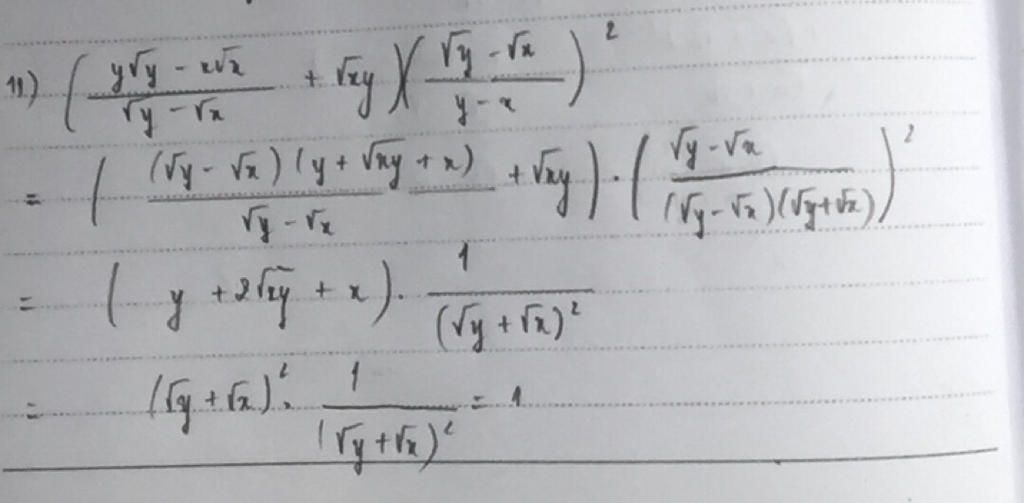 11) ( (y√y - x√x)/(√y - √x) + √xy)((√y - √x)/(y - x))²
= ( ((√y - √x)(y + √xy + x))/(√y - √x) + √xy) . ((√y - √x)/((√y - √x)(√y + √x)))²
= ( y + 2√xy + x) . 1/(√y + √x)²
= (√y + √x)² . 1/(√y + √x)² = 1